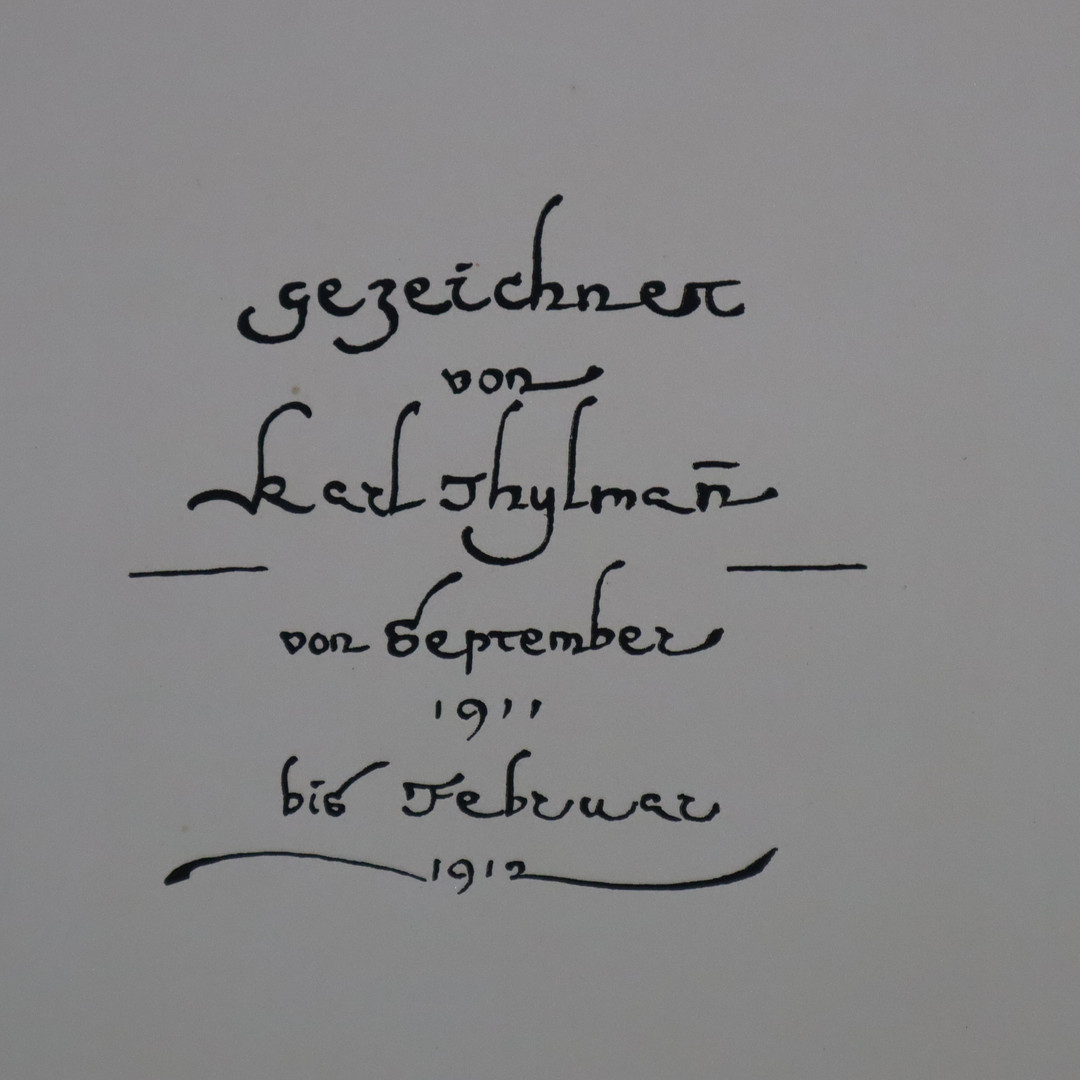 gezeichnet
von
Karl Thylman̄
von September
1911
bis Februar
1912